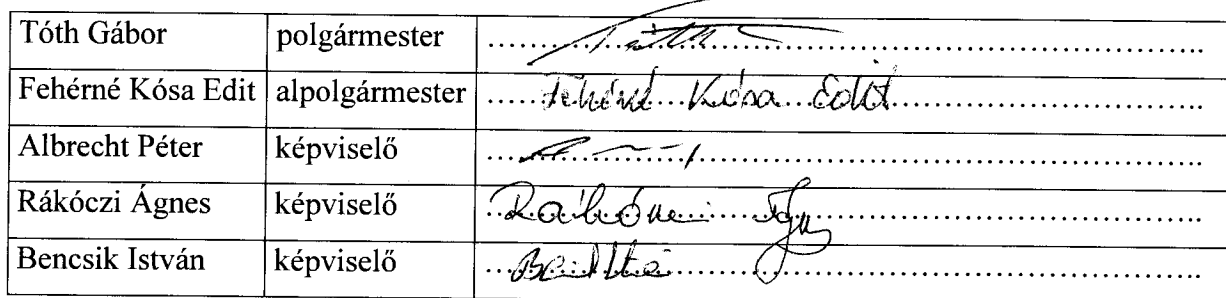 Tóth Gábor polgármester
Fehérné Kósa Edit alpolgármester Fehérné Kósa Edit
Albrecht Péter képviselő
Rákóczi Ágnes képviselő
Bencsik István képviselő